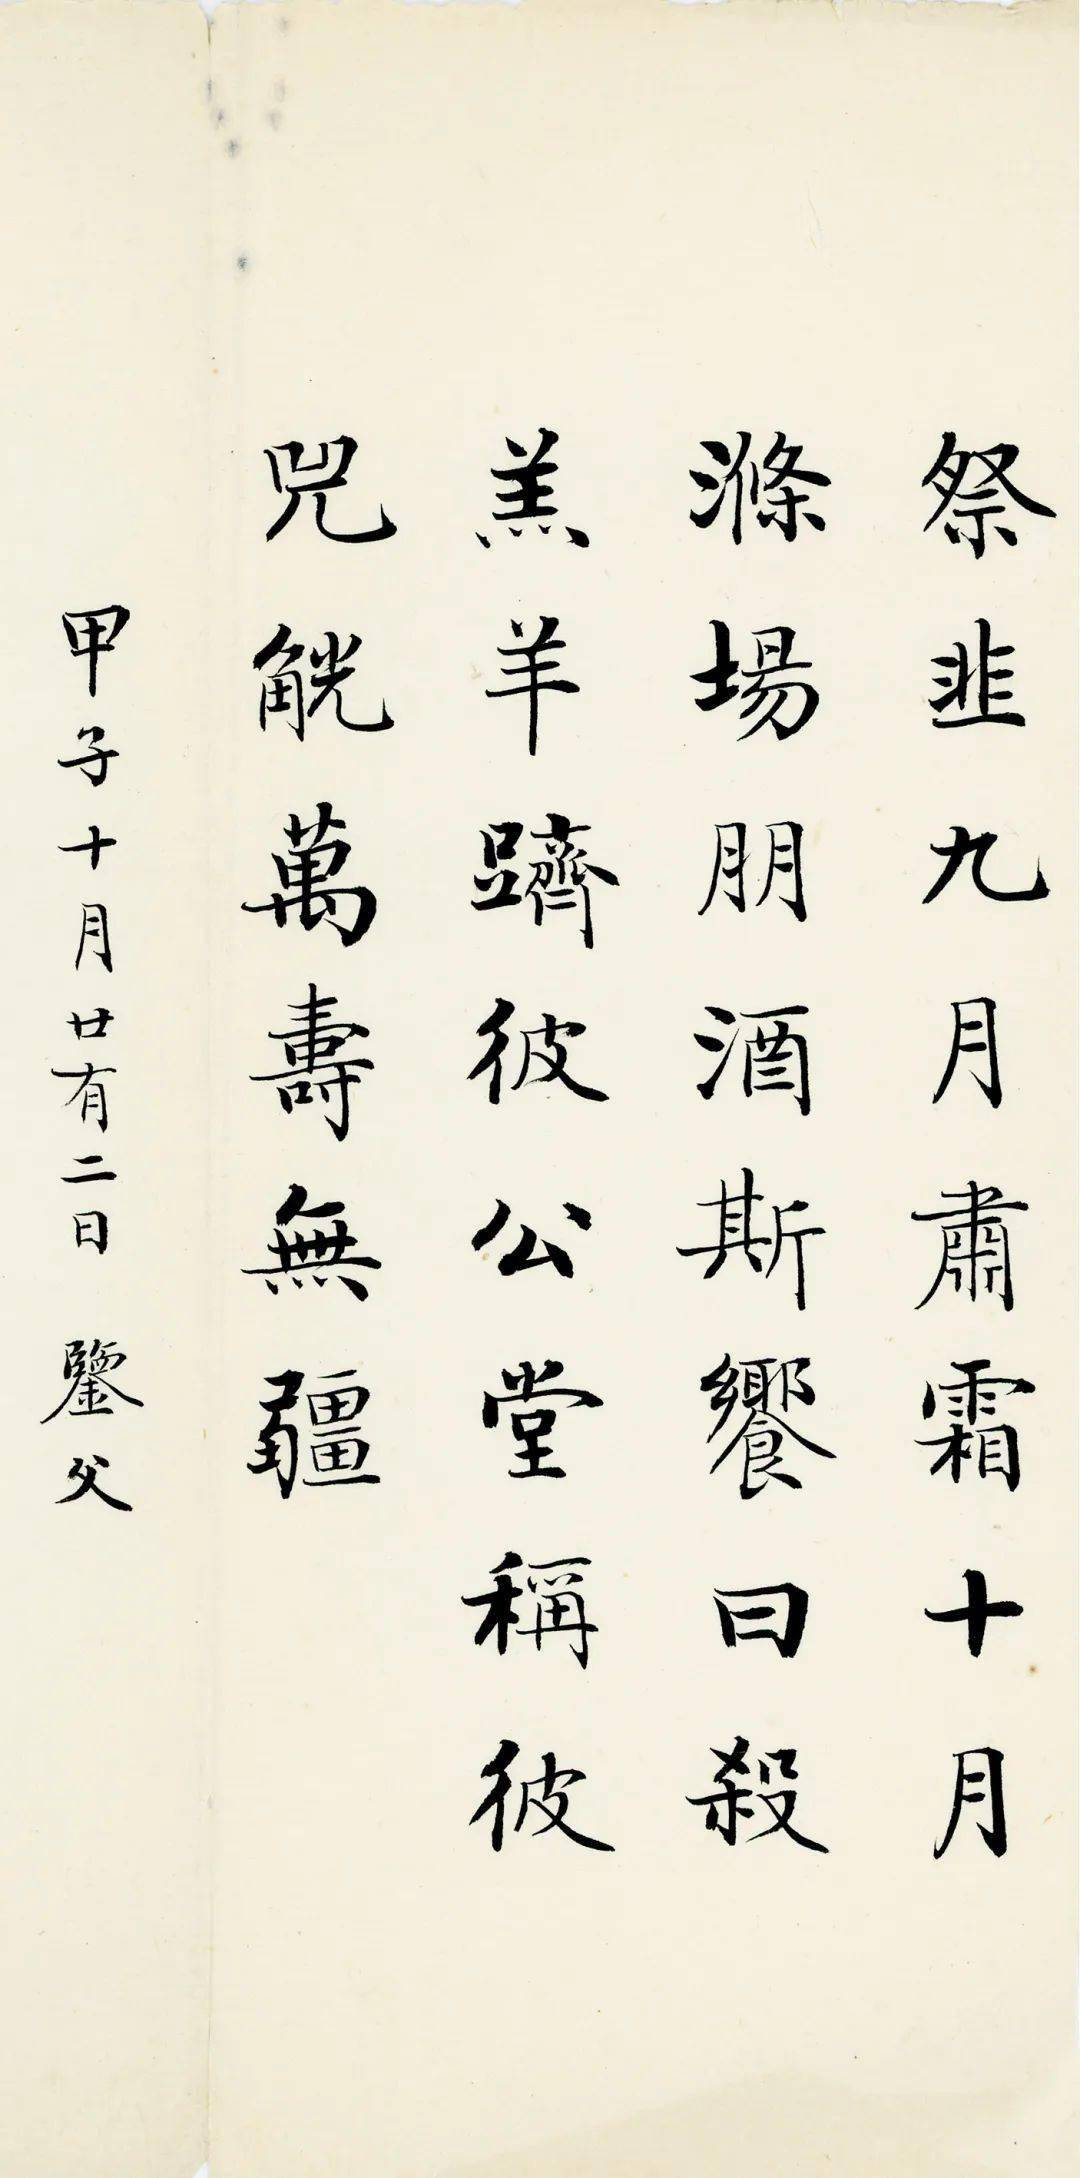 祭韭九月肅霜十月
滌場朋酒斯饗曰殺
羔羊躋彼公堂稱彼
兕觥萬壽無疆
甲子十月廿有二日 鑒父